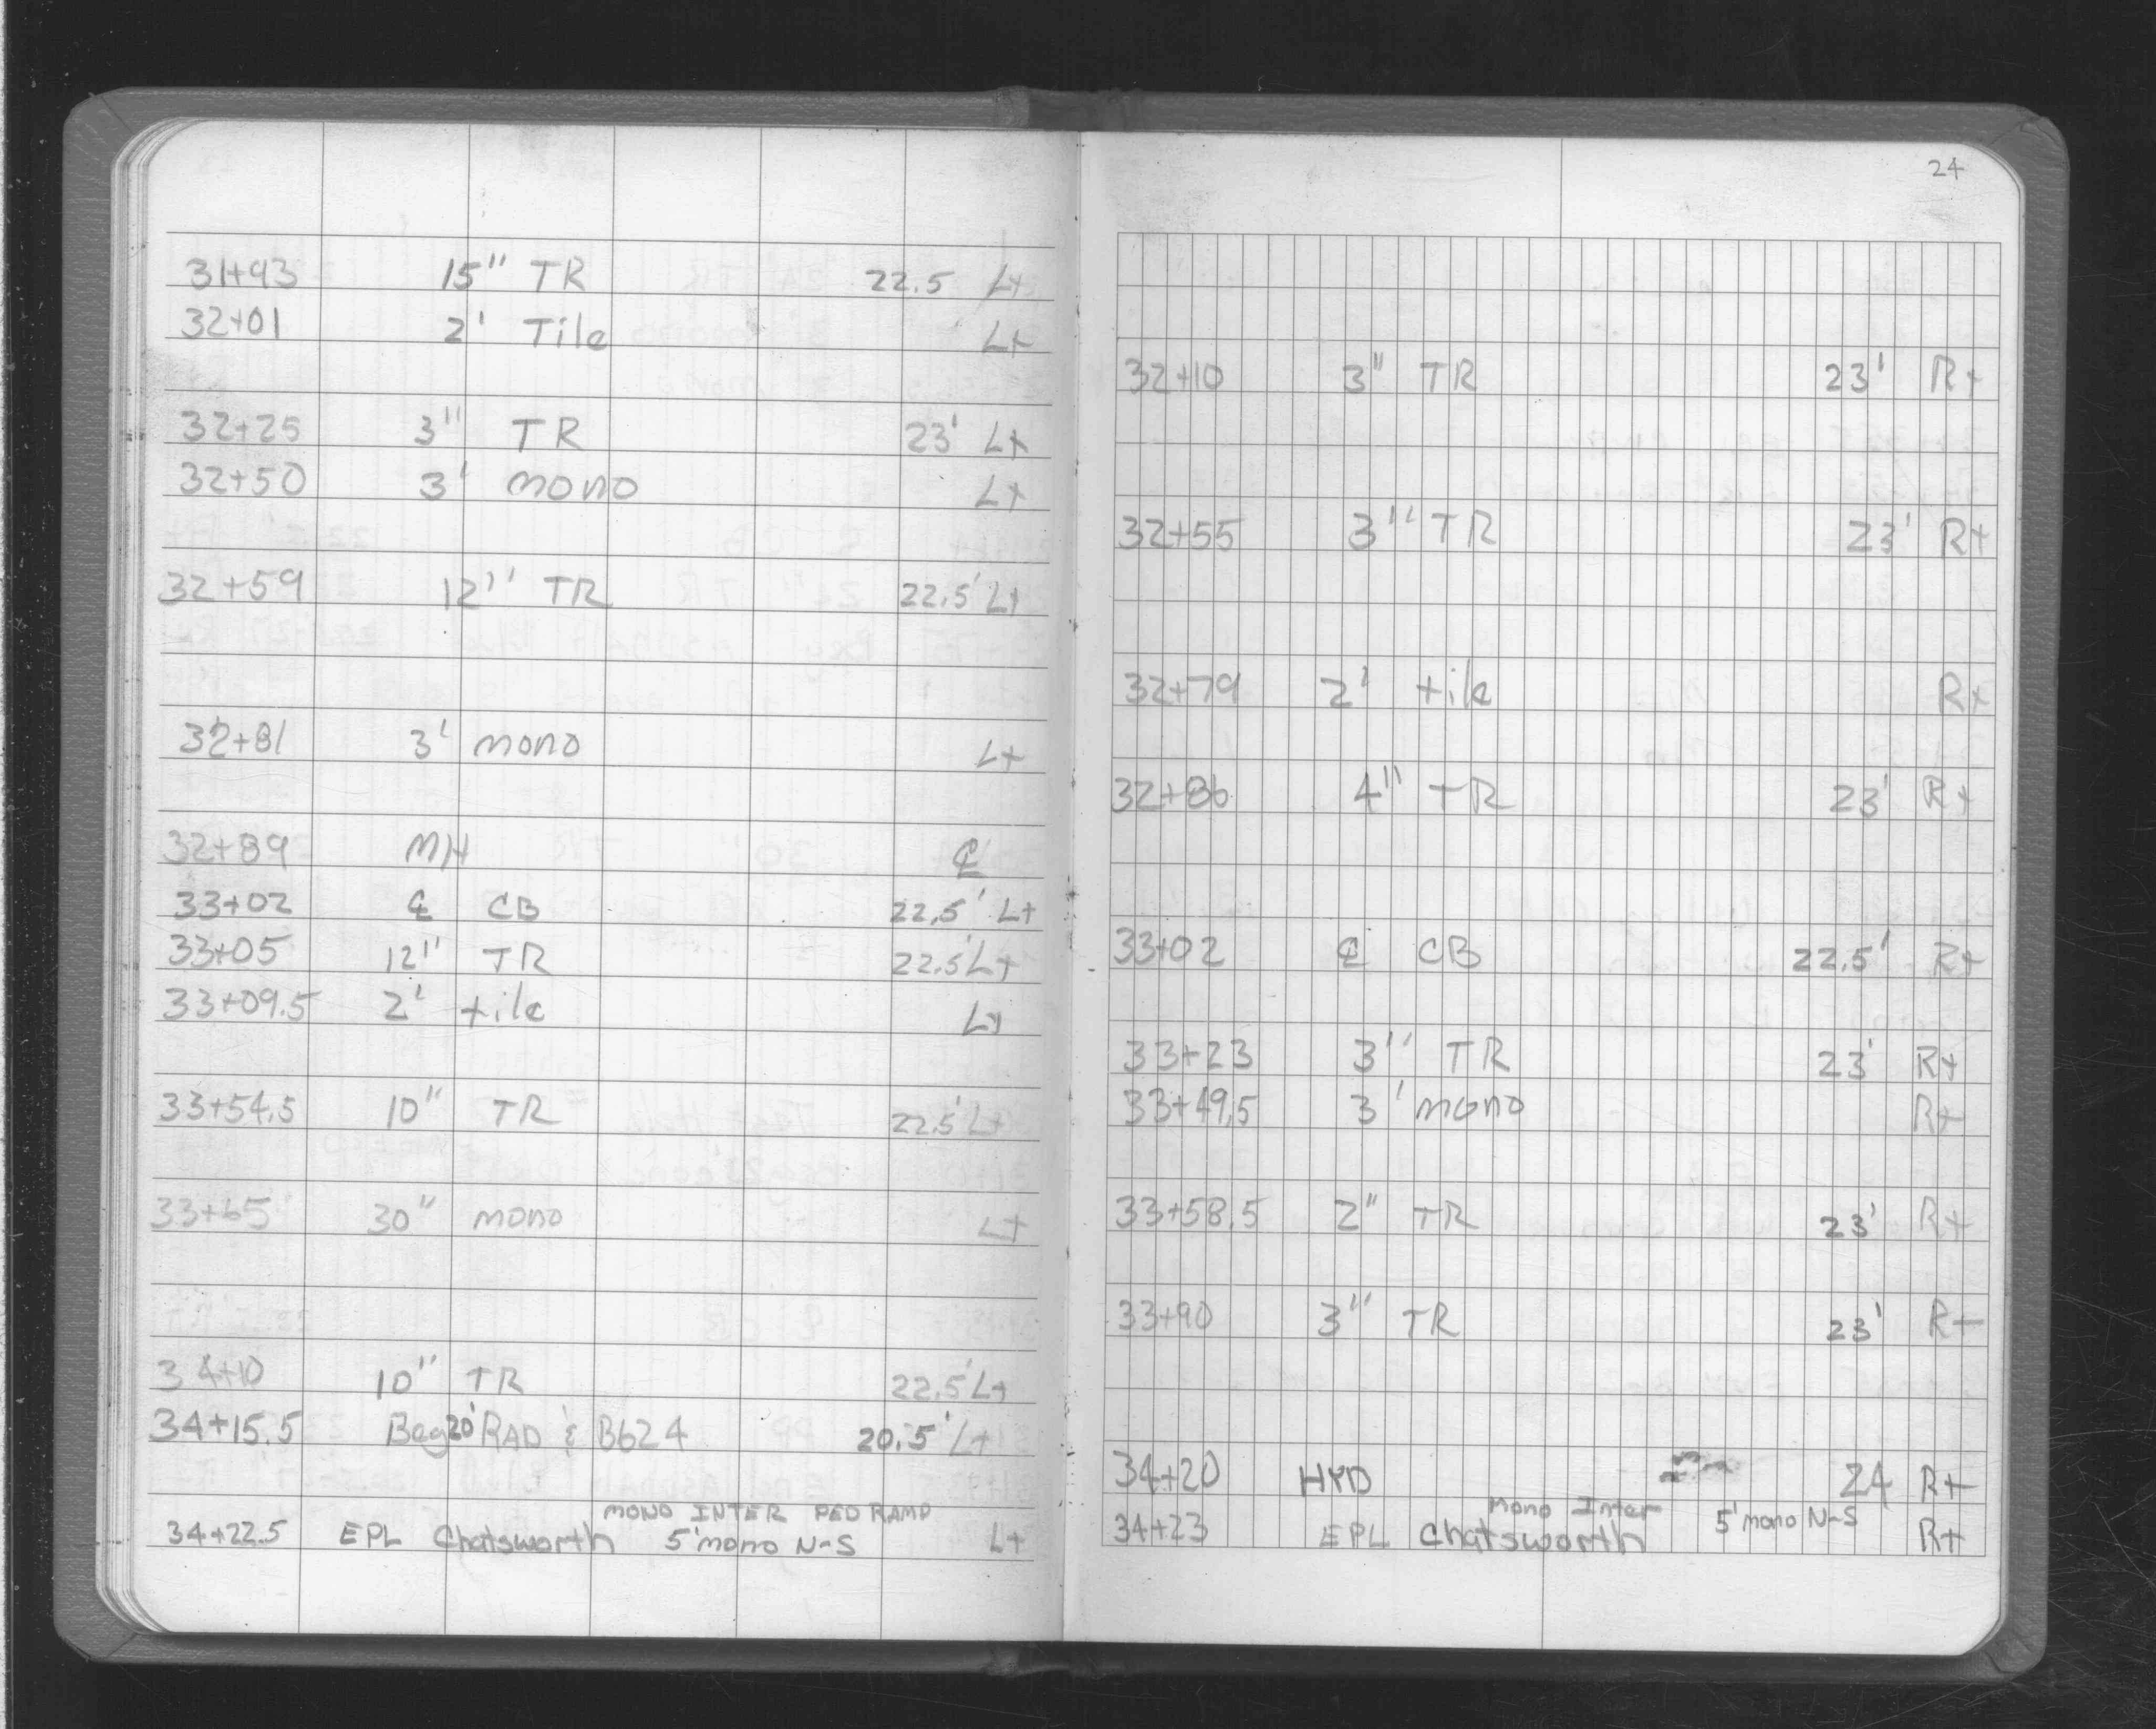 31+93 15" TR 22.5 Lt
32+01 2' Tile Lt
32+25 3" TR 23' Lt
32+50 3' mono Lt
32+59 12" TR 22.5' Lt
32+81 3' mono Lt
32+89 MH ℄
33+02 ℄ CB 22.5' Lt
33+05 12" TR 22.5' Lt
33+09.5 2' tile Lt
33+54.5 10" TR 22.5' Lt
33+65 30" mono Lt
34+10 10" TR 22.5' Lt
34+15.5 Beg 20' RAD & B624 20.5' Lt
MONO INTER PED RAMP
34+22.5 EPL Chatsworth 5' mono N-S Lt
24
32+10 3" TR 23' Rt
32+55 3" TR 23' Rt
32+79 2' tile Rt
32+86 4" TR 23' Rt
33+02 ℄ CB 22.5' Rt
33+23 3" TR 23' Rt
33+49.5 3' mono Rt
33+58.5 2" TR 23' Rt
33+90 3" TR 23' Rt
34+20 HYD 24 Rt
Mono Inter
34+23 EPL Chatsworth 5' mono N-S Rt